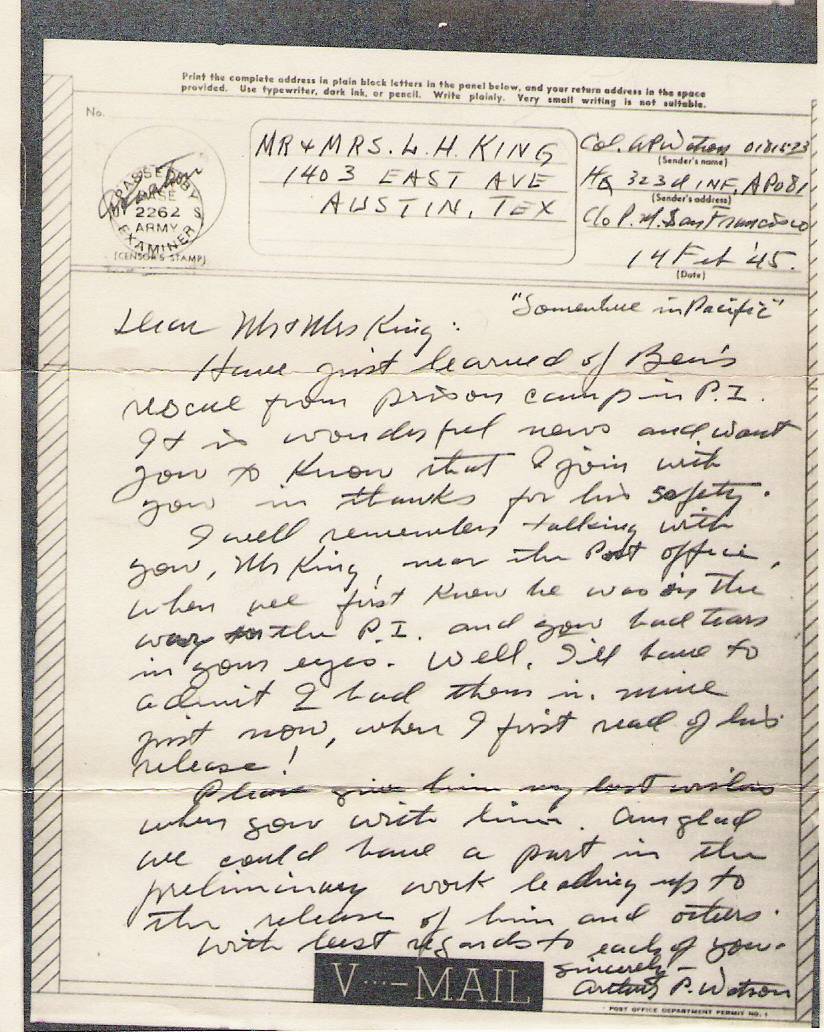 Print the complete address in plain block letters in the panel below, and your return address in the space
provided. Use typewriter, dark ink, or pencil. Write plainly. Very small writing is not suitable.
No.
PASSED BY
BASE
2262
ARMY
EXAMINER
(CENSOR'S STAMP)
MR & MRS. L. H. KING
1403 EAST AVE
AUSTIN, TEX
Col. A P Watson 0181523
(Sender's name)
Hq 323d INF, APO 81
(Sender's address)
C/o P.M. San Francisco
14 Feb '45.
(Date)
"Somewhere in Pacific"
Dear Mr & Mrs King:
Have just learned of Ben's
rescue from prison camp in P.I.
It is wonderful news and want
you to know that I join with
you in thanks for his safety.
I well remember talking with
you, Mr King, near the Post office,
when we first knew he was on the
way to the P.I. and you had tears
in your eyes. Well, I'll have to
admit I had them in mine
just now, when I first read of his
release!
Please give him my best wishes
when you write him. Am glad
we could have a part in the
preliminary work leading up to
the release of him and others.
With best regards to each of you.
Sincerely -
Arthur P. Watson
V···-MAIL
POST OFFICE DEPARTMENT PERMIT NO. 1